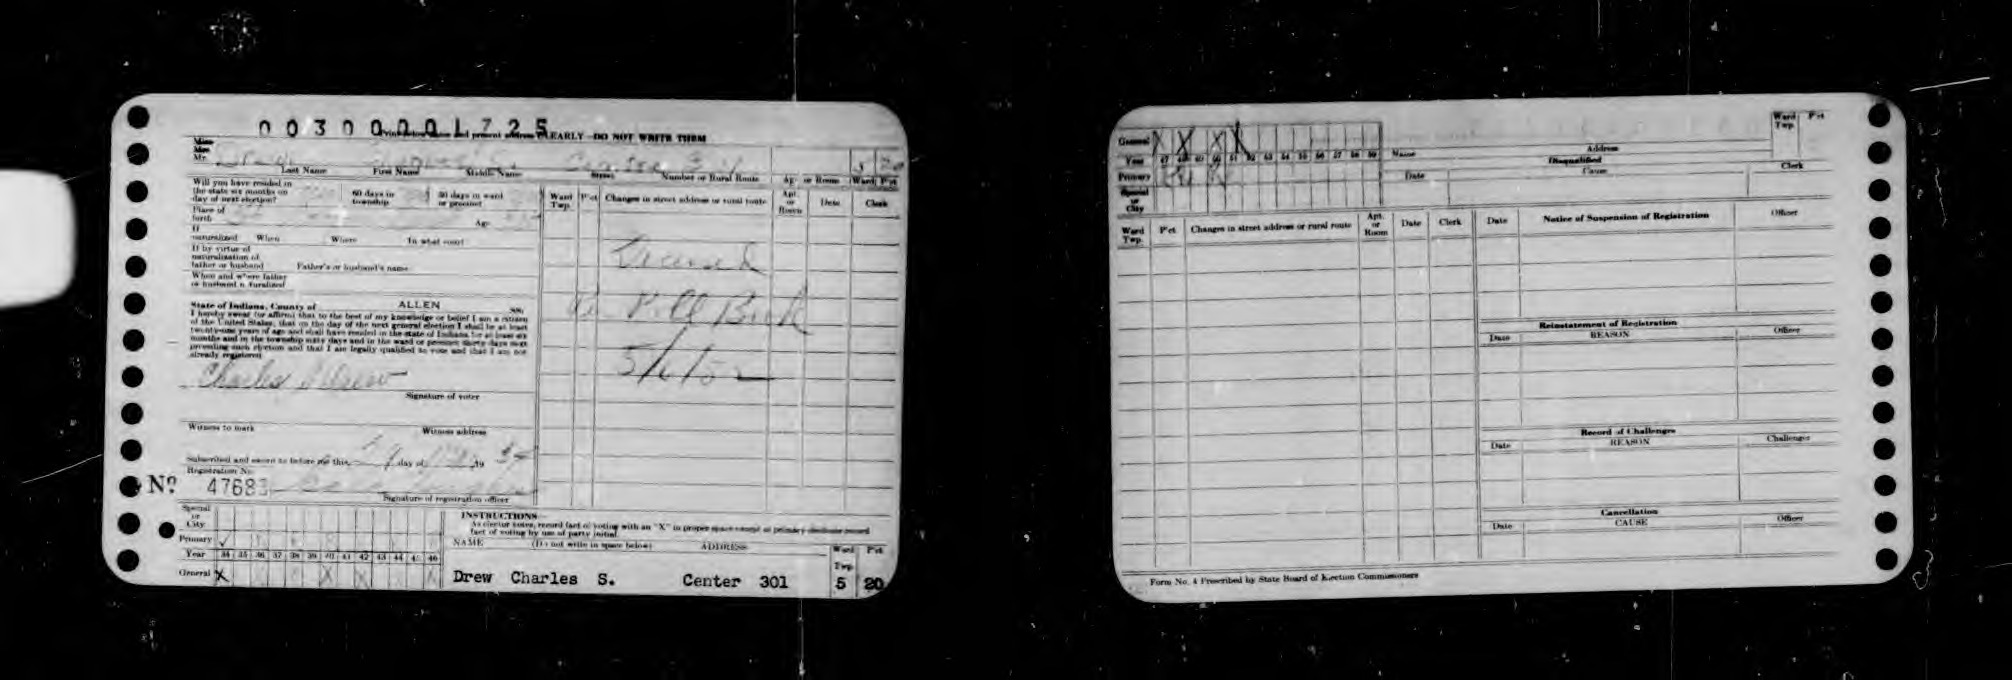 00300001725
CLEARLY—DO NOT WRITE THEM
Miss
Mrs.
Mr.
Last Name First Name Middle Name Street Number or Rural Route Apt. or Room Ward Pct
Will you have resided in
the state six months on
day of next election?
60 days in
township
30 days in ward
or precinct
Place of
birth
Age
If
naturalized When Where In what court
If by virtue of
naturalization of
father or husband Father's or husband's name
When and where father
or husband naturalized
State of Indiana, County of ALLEN SS:
I hereby swear (or affirm) that to the best of my knowledge or belief I am a citizen
of the United States, that on the day of the next general election I shall be at least
twenty-one years of age and shall have resided in the state of Indiana for at least six
months and in the township sixty days and in the ward or precinct thirty days next
preceding such election and that I am legally qualified to vote and that I am not
already registered
Charles S Drew
Signature of voter
Witness to mark Witness address
Subscribed and sworn to before me this day of 19
Registration No.
Nº 4768
Signature of registration officer
Ward
Twp.
Pct Changes in street address or rural route Apt.
or
Room
Date Clerk
Deceased
Per Poll Book
5/6/52
Special
or
City
Primary
Year 34 35 36 37 38 39 40 41 42 43 44 45 46
General X X X
INSTRUCTIONS—
As elector votes, record fact of voting with an "X" in proper space except at primary elections record
fact of voting by use of party initial.
NAME (Do not write in space below) ADDRESS Ward
Twp.
Pct
Drew Charles S. Center 301 5 20
General X X X X
Year 47 48 49 50 51 52 53 54 55 56 57 58 59
Primary
Special
or
City
Name Address
Ward
Twp.
Pct
Disqualified
Date Cause Clerk
Ward
Twp.
Pct Changes in street address or rural route Apt.
or
Room
Date Clerk
Date Notice of Suspension of Registration Officer
Reinstatement of Registration
Date REASON Officer
Record of Challenges
Date REASON Challenger
Cancellation
Date CAUSE Officer
Form No. 4 Prescribed by State Board of Election Commissioners